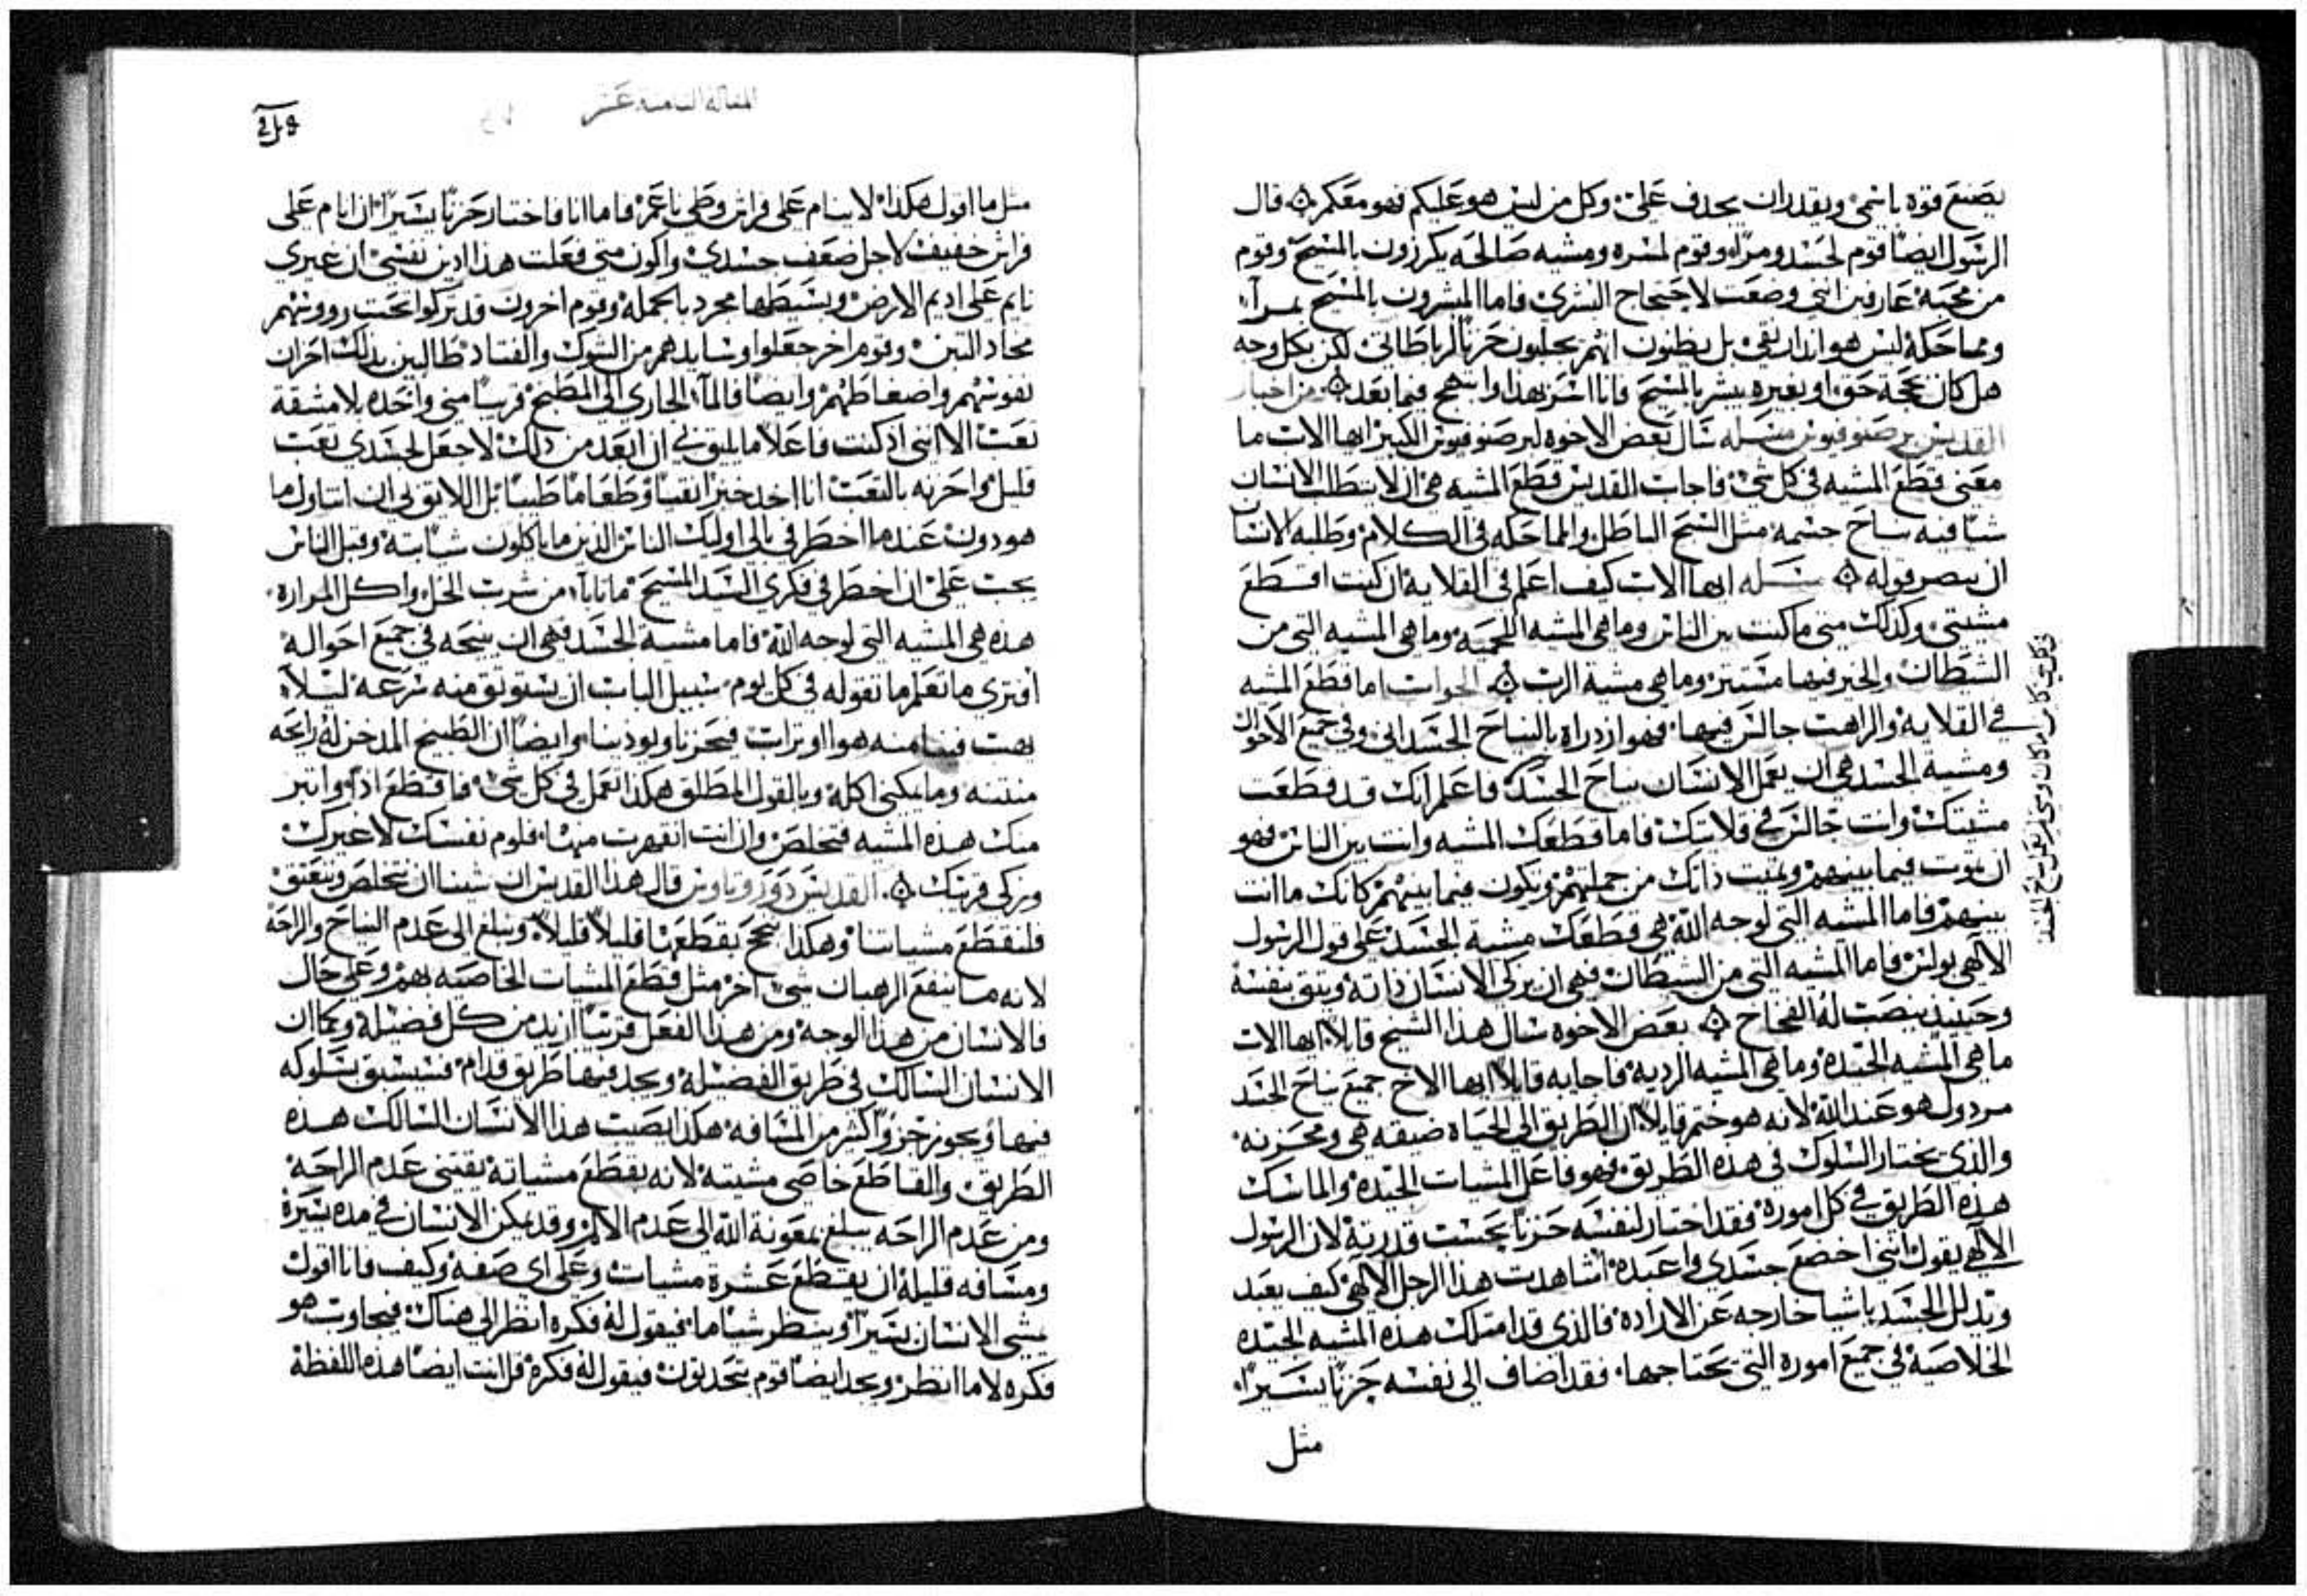 يصنع قوه باسمي ويقدر ان يجدف علي. وكل من ليس هو عليكم فهو معكم ۞ قال
الرسول ايضًا قوم لحسد ومرا، وقوم لمسره ومشيه صالحه يكرزون بالمسيح وقوم
من محبة عارفين انني وضعت لاحتجاج البشرى فاما المبشرون بالمسيح بمرآء
ومماحكة ليس هو انذار نقي بل يظنون انهم يجلبون حزنًا لرباطاتي لكن بكل وجه
هل كان بحجة حق او بغيره يبشر بالمسيح فانا اسر بهذا وابتهج فيما بعد ۞ من اخبار
القديس برصنوفيوس مسله سال بعض الاخوه لبرصنوفيوس الكبير ايها الاب ما
معنى قطع المشيه في كل شي فاجاب القديس قطع المشيه هي ان لا يتطلب الانسان
شيًا فيه نياح جسمه مثل السبح الباطل والمماحكه في الكلام وطلبه الانسان
ان ينصر قوله ۞ مسله ايها الاب كيف اعلم في القلاية ان كنت اقتطع
مشيتي وكذلك متى ما كنت بين الناس وما هي المشيه اللحميه وما هي المشيه التي من
الشيطان والخير فيها مستتر وما هي مشية الرب ۞ الجواب اما قطع المشيه
في القلاية والراهب جالس فيها. فهو ازدراه بالنياح الجسداني وفي جميع الاحوال
ومشية الجسد هي ان يعمل الانسان نياح الجسد فاعلم انك قد قطعت
مشيتك وانت جالس في قلايتك فاما قطعك المشيه وانت بين الناس فهو
ان تموت فيما بينهم وتميت ذاتك من جملتهم وتكون فيما بينهم كانك ما انت
بينهم فاما المشيه التي لوجه الله هي قطعك مشية الجسد على قول الرسول
الالهي بولس فاما المشيه التي من الشيطان فهي ان يزكي الانسان ذاته ويثق بنفسه
وحينيذ ينصب له الفخاخ ۞ بعض الاخوه سال هذا الشيخ قايلًا ايها الاب
ما هي المشيه الجيده وما هي المشيه الرديه فاجابه قايلًا ايها الاخ جميع نياح الجسد
مردول هو عند الله لانه هو ختم قايلًا ان الطريق الى الحياه ضيقه هي ومحزنه
والذي يختار السلوك في هذه الطريق فهو فاعل المشيات الجيده والماسك
هذه الطريق في كل اموره فقد اختار لنفسه حزنًا بحسب قدرته لان الرسول
الالهي يقول انني اخضع جسدي واعبده اشاهدت هذا الرجل الالهي كيف يعبد
ويذلل الجسد باشيا خارجه عن الاراده فالذي قد امتلك هذه المشيه الجيده
الخلاصيه في جميع اموره التي يحتاجها. فقد اضاف الى نفسه حزنًا يسيرًا.
مثل
المقاله الثامنه عشر
مثل ما اقول هكذا لا ينام على فراش وطي ناعم فاما انا فاختار حزنًا يسيرًا ان انام على
فراش خفيف لاجل ضعف جسدي واكون متى فعلت هذا ادين نفسي ان غيري
نايم على اديم الارض وبسيطها مجرد بالجمله وقوم اخرون قد تركوا تحت رووسهم
مخاد التبن وقوم اخر جعلوا وسايدهم من الشوك والقتاد طالبين بذلك احزان
نفوسهم واضغاطهم وايضًا فالماء الجاري الى المطبخ قريبًا مني واخذه بلا مشقة
تعب الا انني اذ كنت فاعلًا ما يليق بي ان ابعد من ذلك لاجعل لجسدي تعب
قليل واحزنه بالتعب انا اخذ خبزًا نقيًا وطعامًا طيبًا بل اللايق بي ان اتناول ما
هو دون عندما اخطر في بالي اوليك الناس الذين ما ياكلون شيًا بته وقبل الناس
يجب علي ان اخطر في فكري السيد المسيح ما ناباه من شرب الخل واكل المراره
هذه هي المشيه التي لوجه الله فاما مشية الجسد فهي ان ينيحه في جميع احواله
افترى ما تعلم ما تقوله في كل يوم سبيل الباب ان يستوثق منه سرعة ليلاء
يهب فينا منه هوا او تراب فيحزنا ويوذينا وايضًا ان الطبيخ المدخن له رايحه
منتنه وما يمكني اكله وبالقول المطلق هكذا العمل في كل شي. فاقطع اذًا وابتر
منك هذه المشيه فتخلص وان انت انقهرت منها. فلوم نفسك لا غيرك
وزكي قريبك ۞. القديس دوروتاوس قال هذا القديس ان شينا ان نتخلص ونعتق
فلنقطع مشياتنا وهكذا ننجح بقطعها قليلًا قليلًا ونبلغ الى عدم النياح والراحة
لانه ما ينفع الرهبان شي اخر مثل قطع المشيات الخاصيه بهم وعلى حال
فالانسان من هذا الوجه ومن هذا الفعل قريبًا ازيد من كل فضيلة وكما ان
الانسان السالك في طريق الفضيلة ويجد فيها طريق قدام فيسبق بسلوكه
فيها ويجوز جزوًا كثيرًا من المسافه هكذا يصيب هذا الانسان السالك هذه
الطريق والقاطع خاصي مشيته لانه بقطع مشياته يقتني عدم الراحة
ومن عدم الراحه يبلغ بمعونة الله الى عدم الالم وقد يمكن الانسان في مده يسيرة
ومسافه قليلة ان يقطع عشرة مشيات وعلى اي صفة وكيف فانا اقول
يمشي الانسان يسيرًا وينظر شيًا ما. فيقول له فكره انظر الى هناك فيجاوب هو
فكره لا ما انظر ويجد ايضًا قوم يتحدثون فيقول له فكره قل انت ايضًا هذه اللفظة